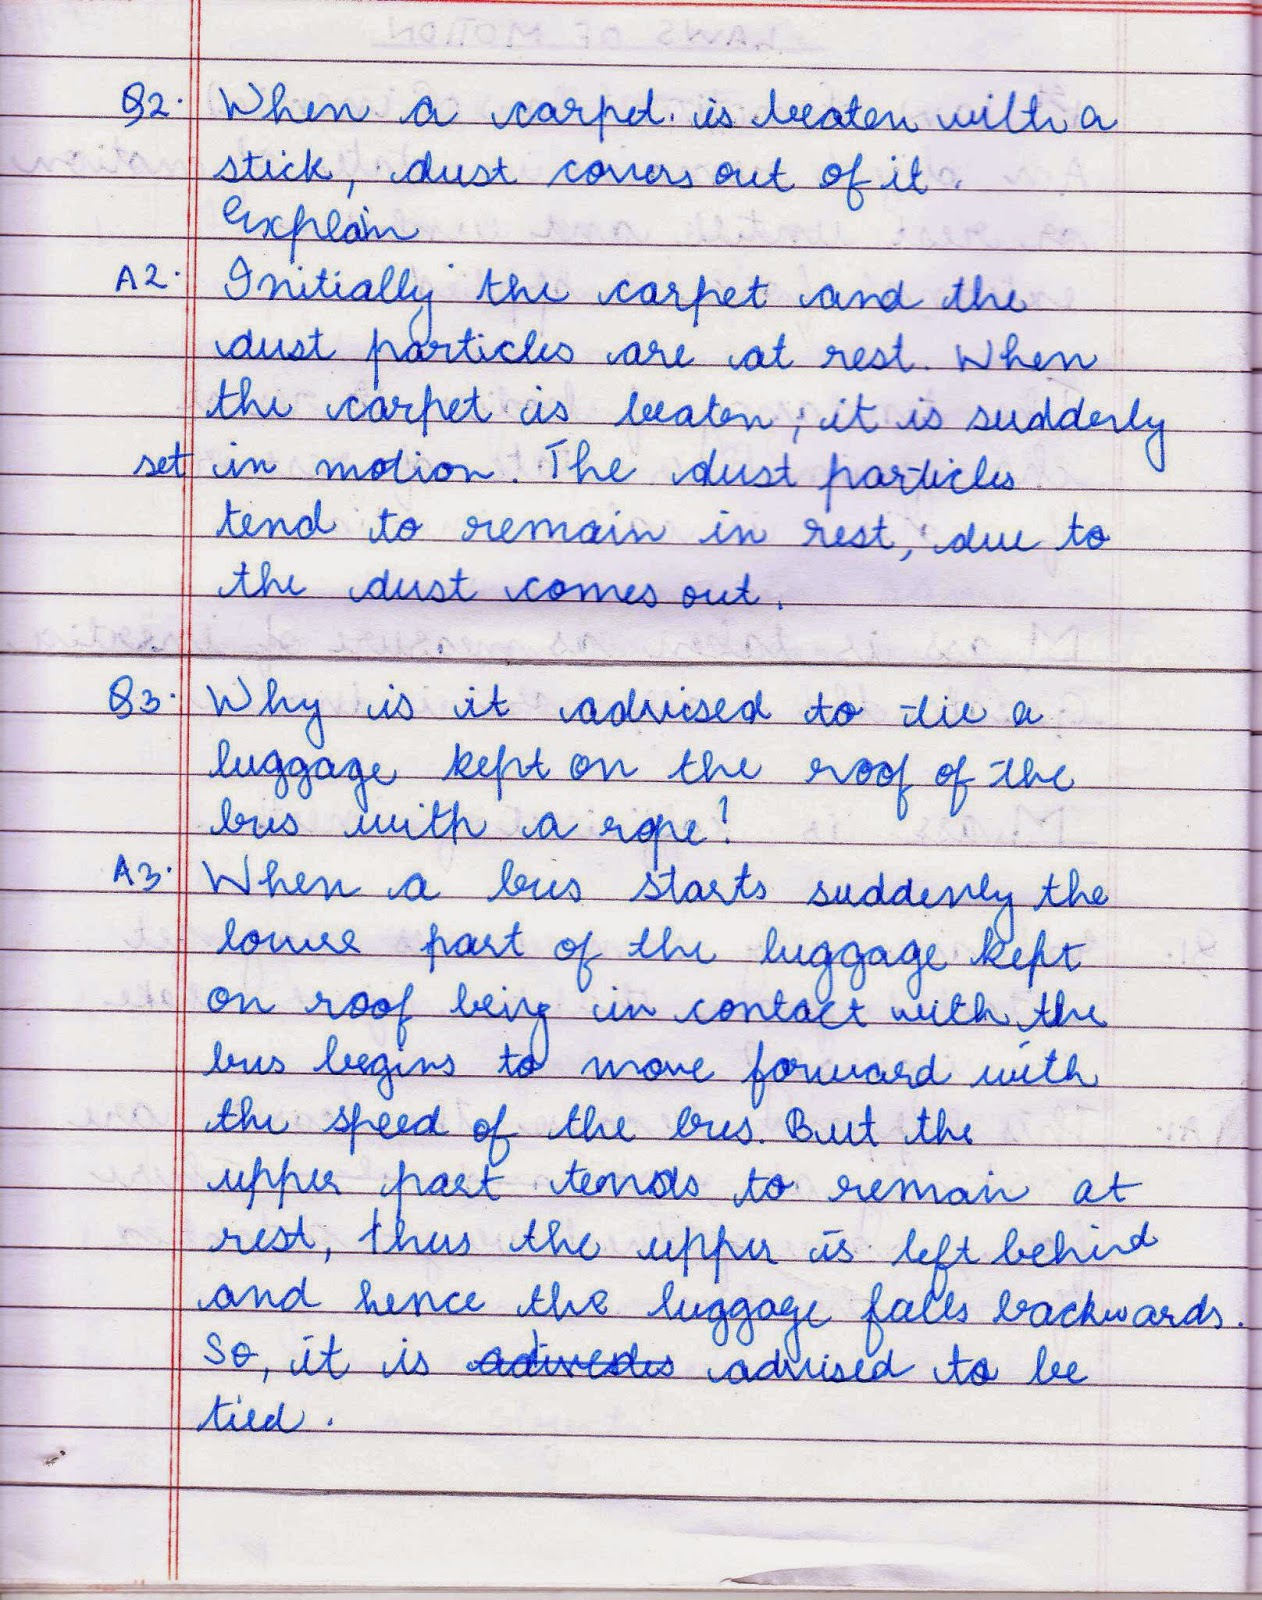 Q2. When a carpet. is beaten with a
stick, dust comes out of it.
Explain
A2. Initially the carpet and the
dust particles are at rest. When
the carpet is beaten, it is suddenly
set in motion. The dust particles
tend to remain in rest, due to
the dust comes out.
Q3. Why is it advised to tie a
luggage kept on the roof of the
bus with a rope?
A3. When a bus starts suddenly the
lower part of the luggage kept
on roof being in contact with the
bus begins to move forward with
the speed of the bus. But the
upper part tends to remain at
rest, thus the upper is left behind
and hence the luggage falls backwards.
So, it is advised to be
tied.